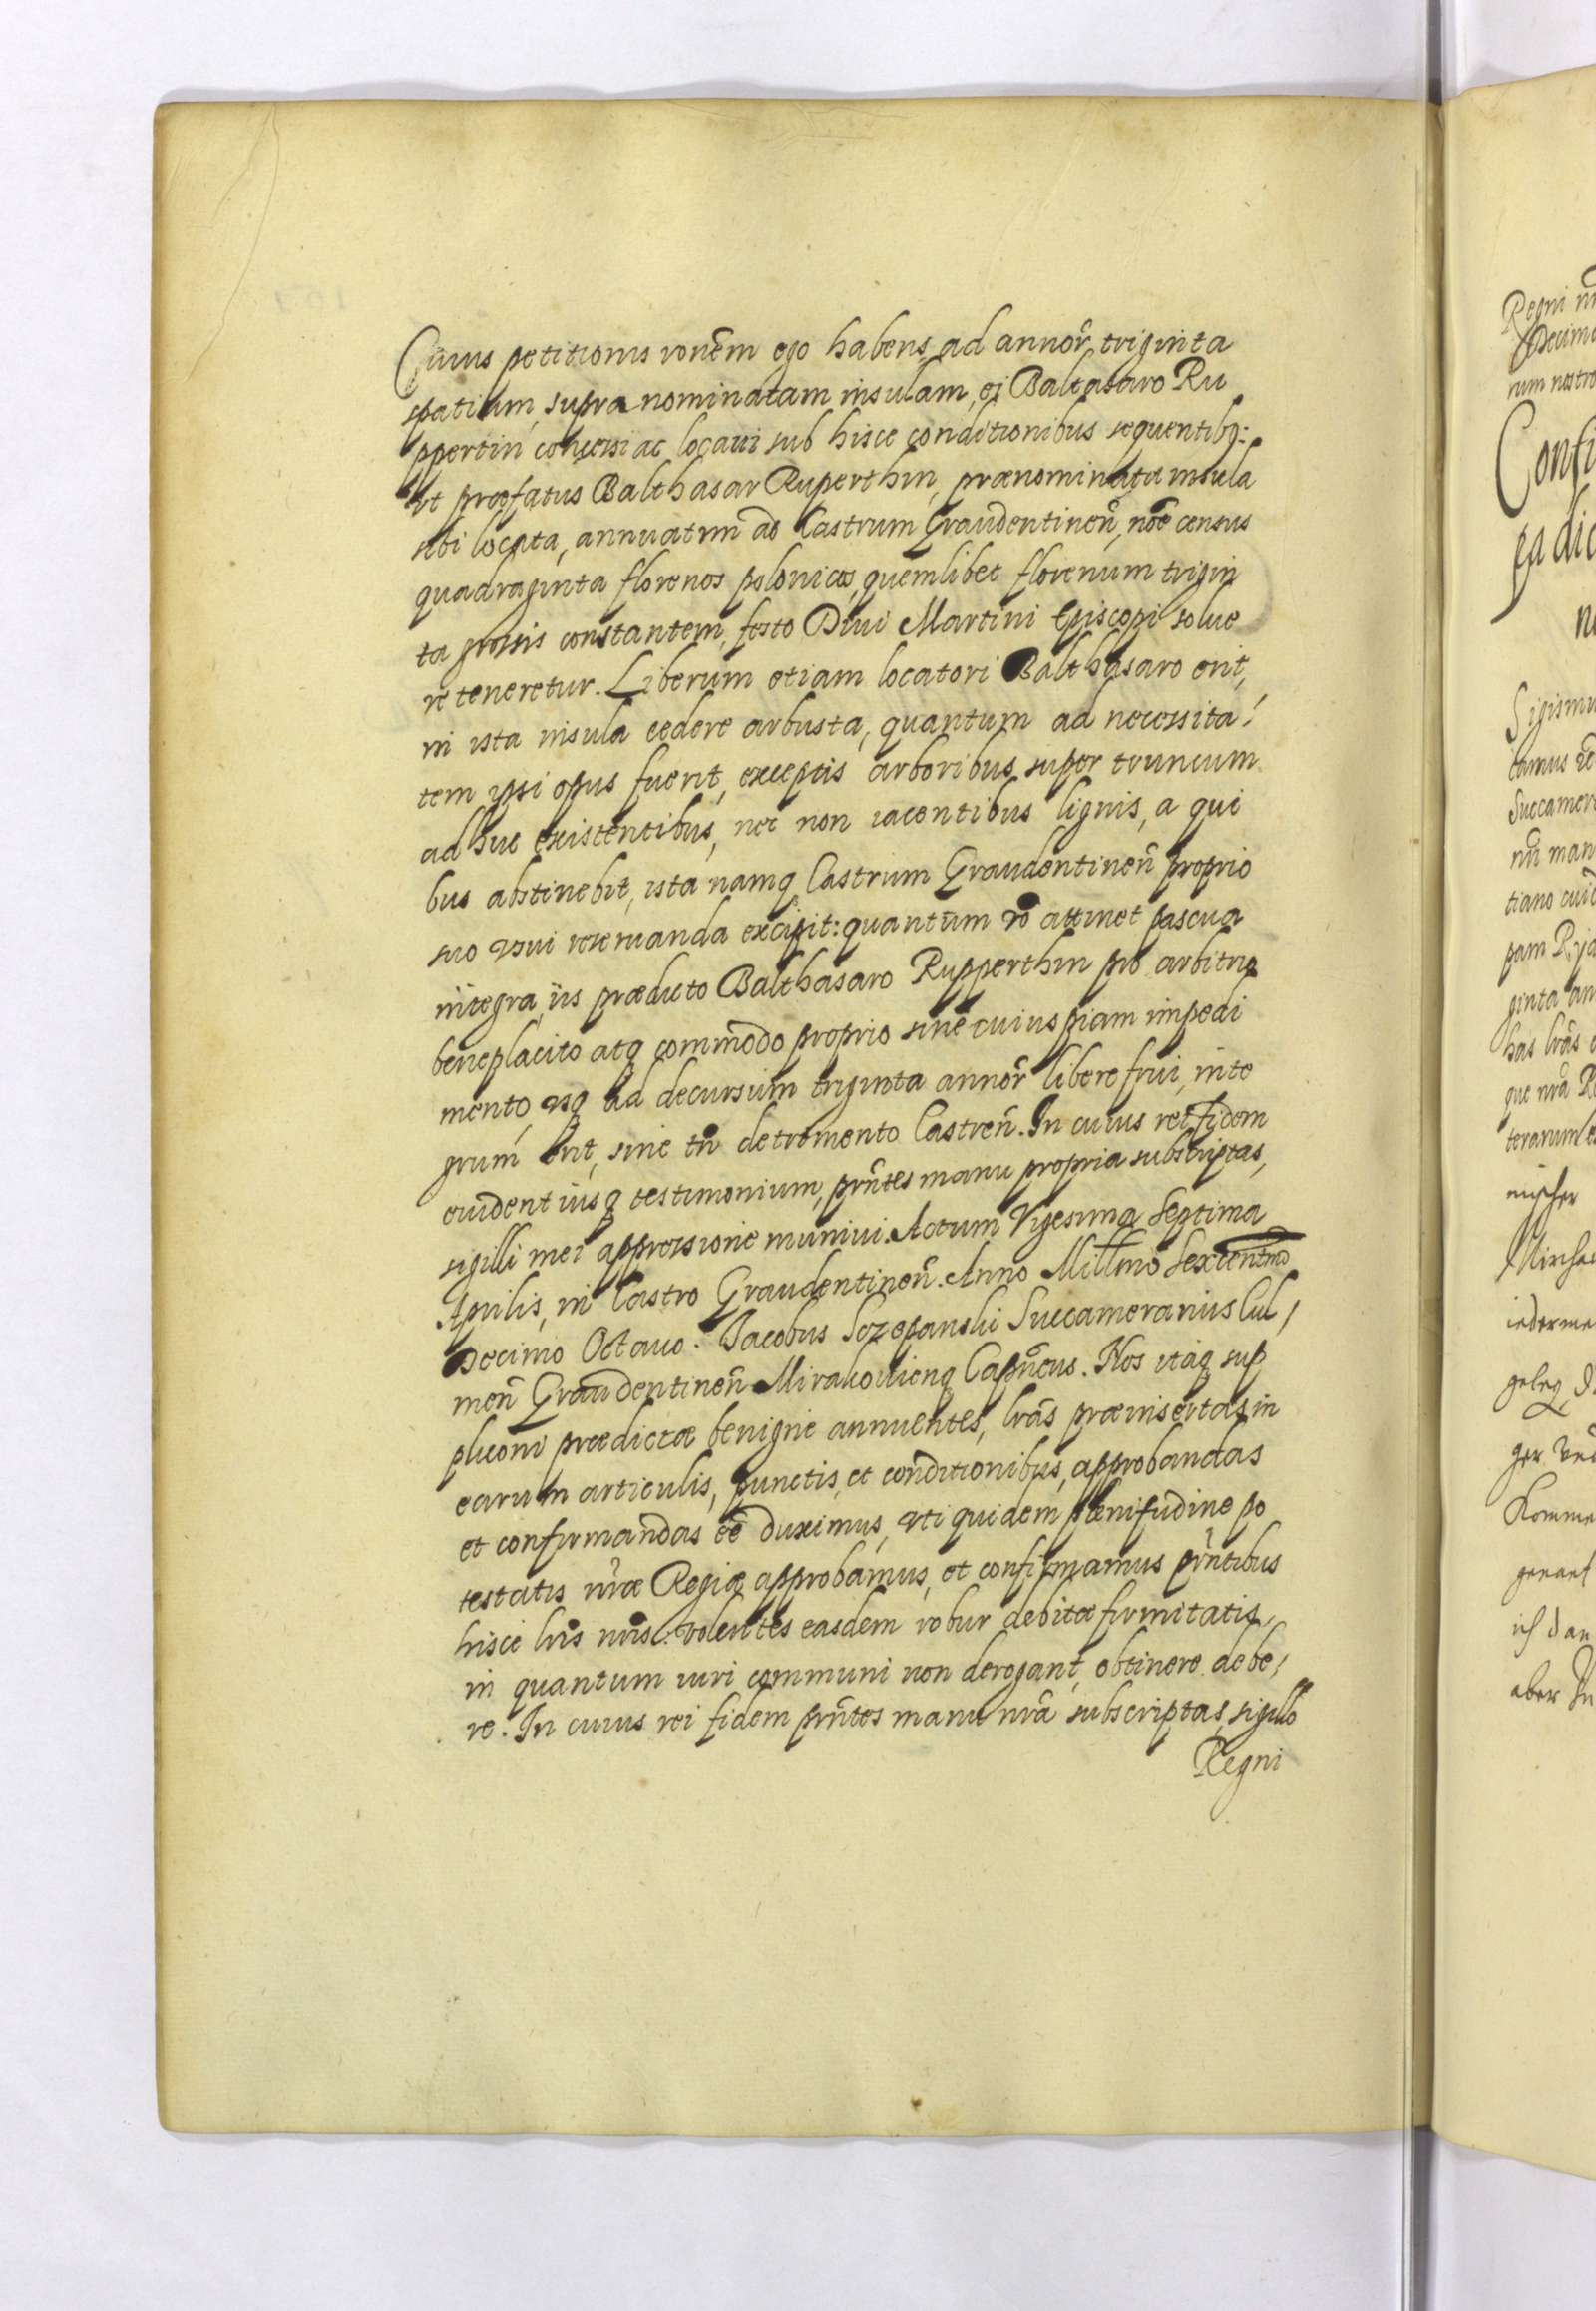 Cuius petitionis ronem ego habens, ad annor. triginta
spatium, supra nominatam insulam, ei Baltasaro Ru
ppertin concessi ac locaui sub hisce conditionibus sequentibq:
vt præfatus Balthasar Ruperthin, prænominata insula
sibi locata, annuatim ad Castrum Graudentinen̄, nōe census
quadraginta florenos polonicos, quemlibet florenum trigin
ta grossis constantem, festo Diui Martini Episcopi solue
re teneretur. Liberum etiam locatori Balthasaro erit,
in ista insula cedere arbusta, quantum ad necessita/
tem ipsi opus fuerit, exceptis arboribus super truncum
ad huc existentibus, nec non iacentibus lignis, a qui
bus abstinebit, ista namq Castrum Graudentinen̄ proprio
suo vsui reseruanda excipit: quantum v̄o attinet pascua
integra, iis prædicto Balthasaro Rupperthin pro arbitrio
beneplacito atq commodo proprio sine cuiuspiam impedi
mento, vsq ad decursum triginta annor. libere frui, inte
grum erit, sine tn̄ detromento Castren̄. In cuius rei fidem
euidentiusq testimonium, prn̄tes manu propria subscriptas,
sigilli mei appressione muniui. Actum Vigesima Septima
Aprilis, in Castro Graudentinen̄. Anno Millmo Sexcentmo
Decimo Octauo. Jacobus Sczepanski Succamerarius Cul/
men̄ Graudentinen̄ Mirakouienq Capn̄eus. Nos itaq sup
plicōni prædictæ benigne annuentes, lrās præinsertas in
earum articulis, punctis, et conditionibus, approbandas
et confirmandas eē duximus, vti quidem plenitudine po
testatis nr̄æ Regiæ approbamus, et confirmamus prn̄tibus
hisce lrīs nrīs. volentes easdem robur debitæ firmitatis,
in quantum iuri communi non derogant, obtinere debe/
re. In cuius rei fidem prn̄tes manu nrā subscriptas, sigillo
Regni
Regni
rum nostro
Confi
ea dic
Sigismu
Succamer
tiano cuid
pam Rya
ginta an
has lrās
que nrā Re
terarum
iederme
aber